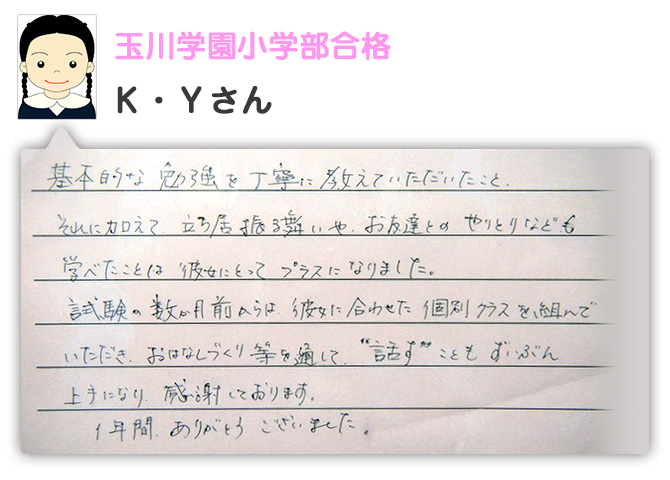 玉川学園小学部合格
K・Yさん
基本的な勉強を丁寧に教えていただいたこと、
それに加えて、立ち居振る舞いや、お友達とのやりとりなども
学べたことは彼女にとってプラスになりました。
試験の数か月前からは、彼女に合わせた個別クラスを組んで
いただき、おはなしづくり等を通して、“話す”こともずいぶん
上手になり、感謝しております。
1年間、ありがとうございました。